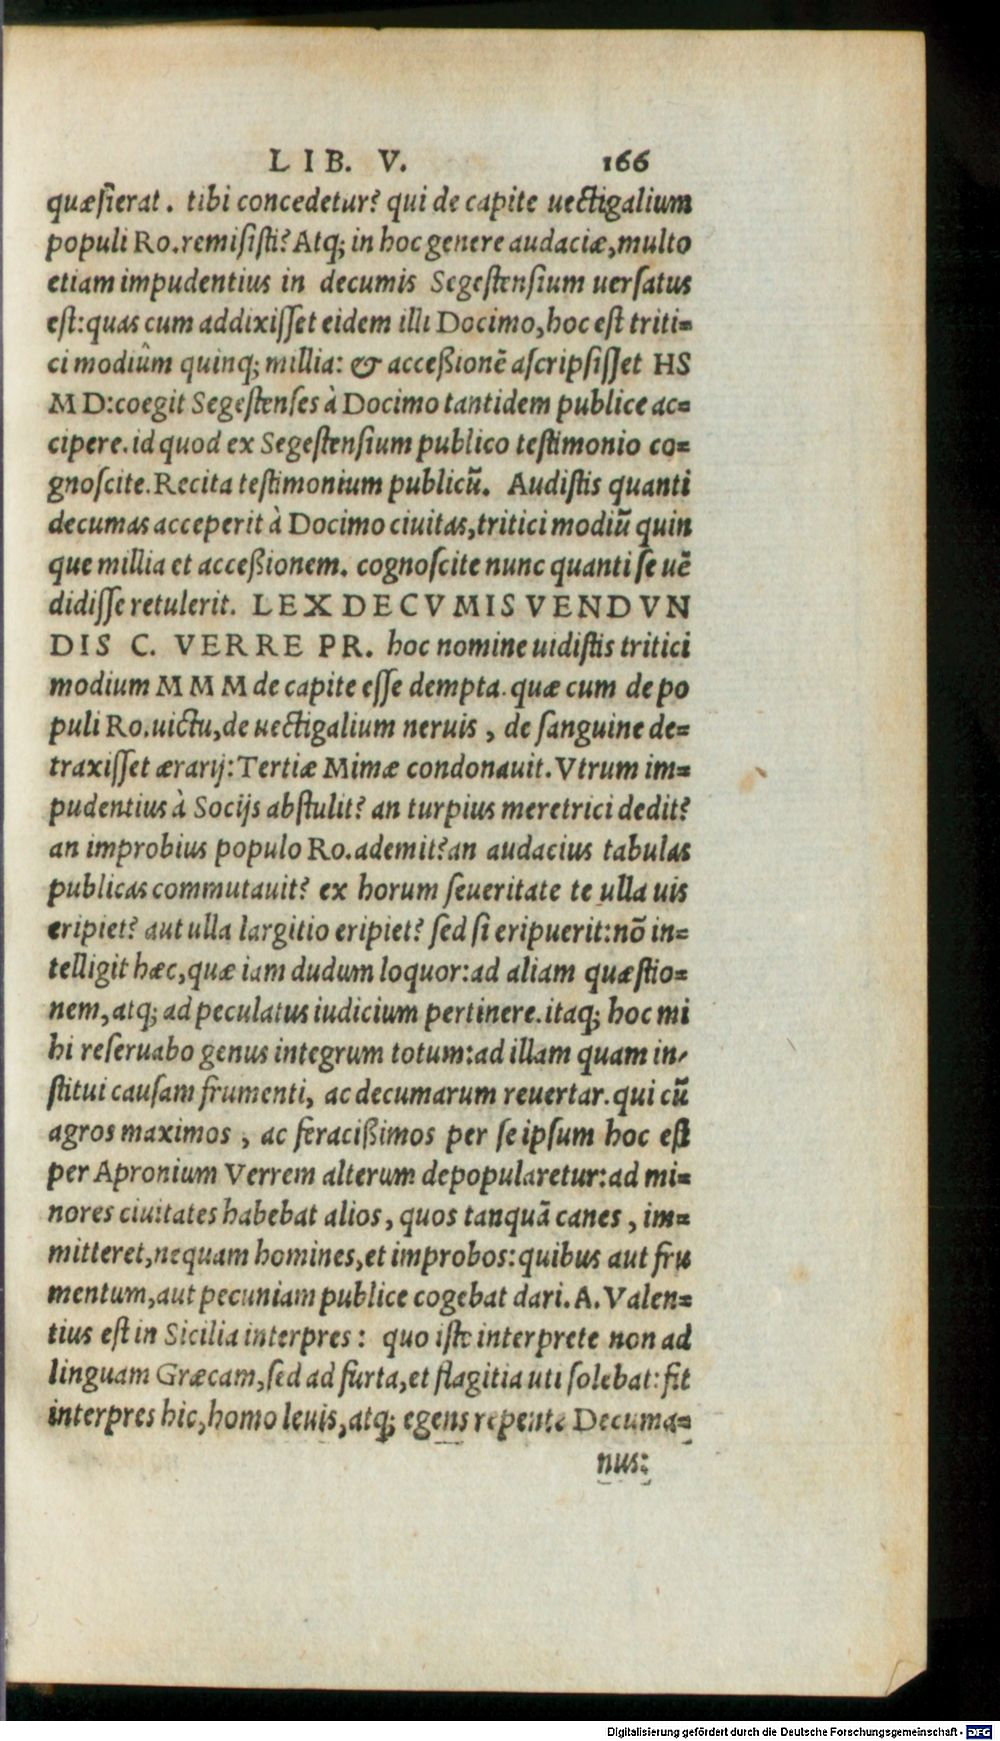 LIB. V. 166
quæsierat. tibi concedetur? qui de capite uectigalium
populi Ro. remisisti? Atq; in hoc genere audaciæ, multo
etiam impudentius in decumis Segestensium uersatus
est: quas cum addixisset eidem illi Docimo, hoc est triti=
ci modiûm quinq; millia: & accessionẽ ascripsisset HS
M D: coegit Segestenses à Docimo tantidem publice ac=
cipere. id quod ex Segestensium publico testimonio co=
gnoscite. Recita testimonium publicũ. Audistis quanti
decumas acceperit à Docimo ciuitas, tritici modiũ quin
que millia et accessionem. cognoscite nunc quanti se uẽ
didisse retulerit. LEX DECVMIS VENDVN
DIS C. VERRE PR. hoc nomine uidistis tritici
modium M M M de capite esse dempta. quæ cum de po
puli Ro. uictu, de uectigalium neruis, de sanguine de=
traxisset ærarij: Tertiæ Mimæ condonauit. Vtrum im=
pudentius à Socijs abstulit? an turpius meretrici dedit?
an improbius populo Ro. ademit? an audacius tabulas
publicas commutauit? ex horum seueritate te ulla uis
eripiet? aut ulla largitio eripiet? sed si eripuerit: nõ in=
telligit hæc, quæ iam dudum loquor: ad aliam quæstio=
nem, atq; ad peculatus iudicium pertinere. itaq; hoc mi
hi reseruabo genus integrum totum: ad illam quam in-
stitui causam frumenti, ac decumarum reuertar. qui cũ
agros maximos, ac feracissimos per se ipsum hoc est
per Apronium Verrem alterum depopularetur: ad mi=
nores ciuitates habebat alios, quos tanquã canes, im=
mitteret, nequam homines, et improbos: quibus aut fru
mentum, aut pecuniam publice cogebat dari. A. Valen=
tius est in Sicilia interpres: quo iste interprete non ad
linguam Græcam, sed ad furta, et flagitia uti solebat: fit
interpres hic, homo leuis, atq; egens repente Decuma=
nus:
Digitalisierung gefördert durch die Deutsche Forschungsgemeinschaft - DFG